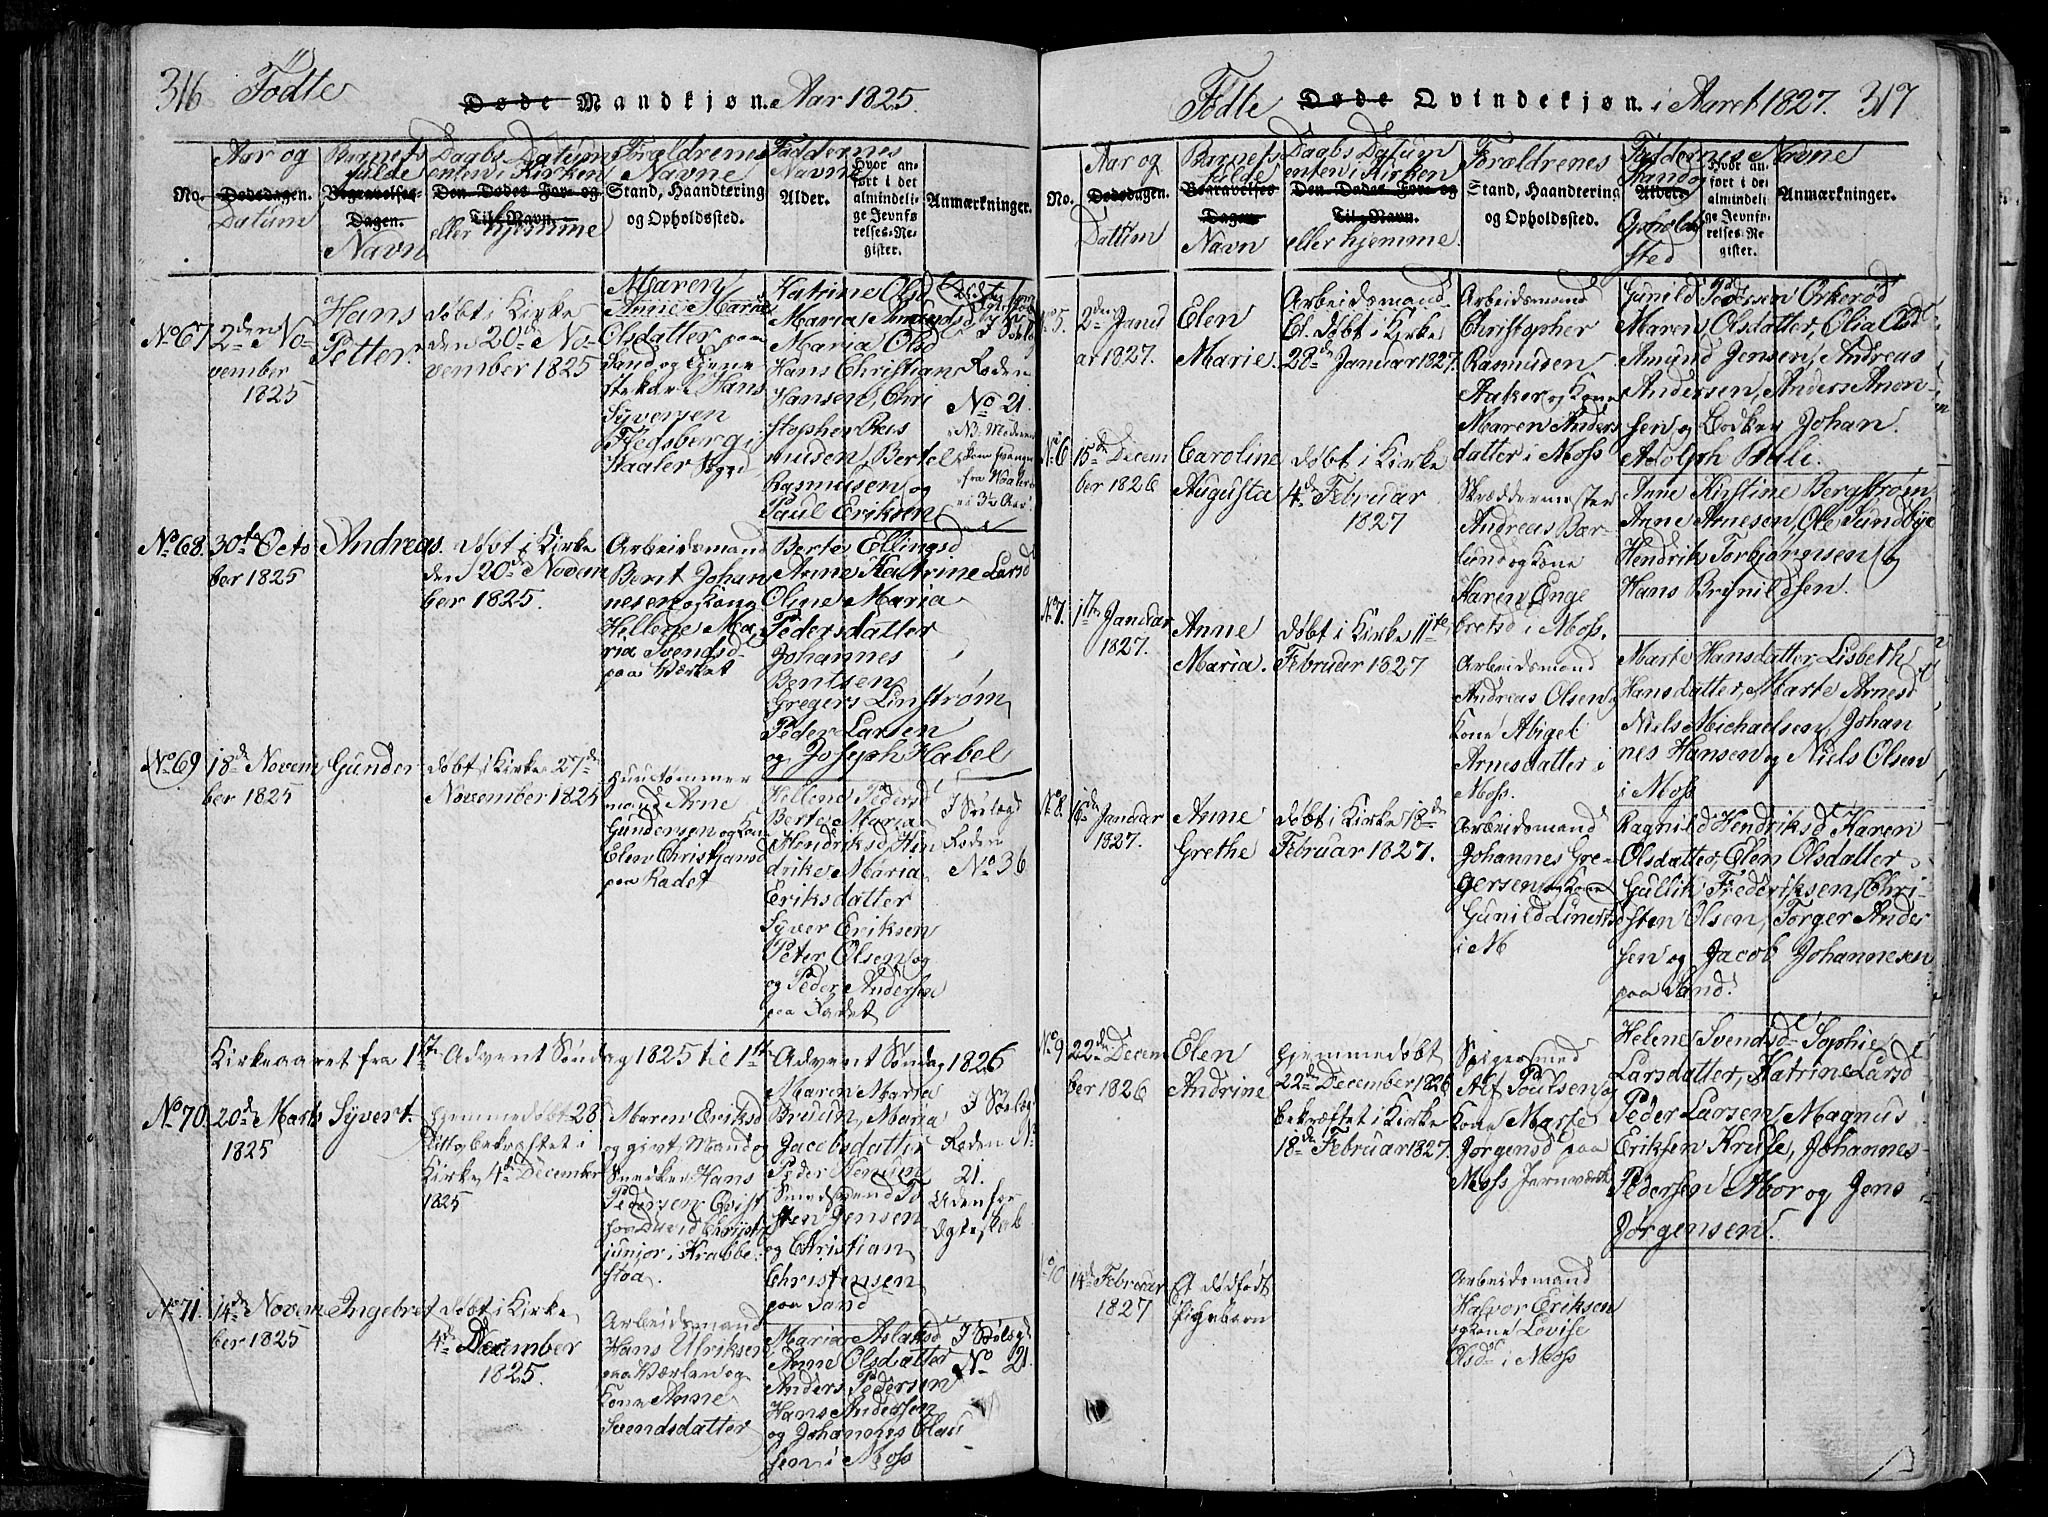 316 Födte Døde Mandkjøn. Aar 1825.
No.
Aar og
Dødsdagen.
Datum
Barnets
fulde
Begravelses-
Dagen.
Navn
Daabs Datum
enten i Kirken
Den Dødes For- og
Til-Navn.
eller hjemme
Forældrenes
Navne
Stand, Haandtering
og Opholdssted.
Faddernes
Navne
Alder.
Hvor an-
ført i det
almindeli-
ge Jevnfø-
relses-Re-
gister.
Anmærkninger.
No 67
2den No
vember
1825
Hans
Petter.
døbt i Kirke
den 20de No-
vember 1825
Maren
Anne Marie
Olsdatter paa
Sand, og
Hans
Syversen
Flegsberg i
Vaaler Sogn
Katrine Olsd
Maria Amundsd
Maria Olsd
Hans Christian
Hansen, Chri
stopher Ras
musen, Bertel
Rasmusen og
Paul Eriksen
Roden
No 21.
No 68.
30te Octo
ber 1825
Andreas.
døbt i Kirke
den 20de Novem
ber 1825.
Arbeidsmand
Bent Johan
nesen og Kone
Hellene Ma
ria Svendsd
paa Værket
Berte Ellingsd
Anne Katrine Larsd
Oline Maria
Pedersdatter
Johannes
Bentsen
Gregers Linstrøm
Peder Larsen
og Joseph Habel
No 69
18de Novem
ber 1825
Gunder
døbt i Kirke 27de
November 1825
Huustømmer
mand Arne
Gundersen og Kon
Elen Christjansd
paa Radet
Hellene Pedersd
Berte Maria
Hendriksd, Hen
drike Maria
Eriksdatter
Syver Eriksen
Peter Olsen og
og Peder Andersen
paa Radet
Roden
No 36
Kirkeaaret fra 1ste Advent Søndag 1825 til 1ste Advent Søndag 1826
No 70.
20de Marts
1825
Syvert.
hjemmedøbt 28
bekræftet i
Kirke 4de December
1825
Maren Eriksd
og givt, Mand
Sneeker Hans
Pedersen
David Chrystie
junior i Krabbe-
stoa.
Maren Maria
Bruun, Maria
Jacobsdatter
Peder
Smedsvend To
sten Jensen
og Christian
Christensen
paa Sand
Roden No
21.
Udenfor
Egteskab
No 71.
14de Novem
ber 1825
Ingebret
døbt i Kirke
4de December
1825.
Arbeidsmand
Hans Ulriksen
paa Værlen og
Kone Anne
Svendsdatter
Maria Aslaksd
Anne Olsdatter
Anders Pedersen
Hans Andersen
og Johannes Olau
sen i Moss
No 21
Fødte Døde Qvindekjøn. i Aaret 1827. 317
No.
Aar og
Dødsdagen.
Datum
Barnets
fulde
Begravelses
Dagen
Navn
Daabs Datum
enten i Kirken
Den Dødes For- og
Til-Navn.
eller hjemme.
Forældrenes
Stand, Haandtering
og Opholdssted.
Faddernes Navne
Stand og
Alder.
Opholds
sted
Hvor an-
ført i det
almindeli-
ge Jevnfø-
relses-Re-
gister.
Anmærkninger.
No 5.
2den Janu
ar 1827.
Elen
Marie
Arbeidsmand.
El. døbt i Kirke
28de Januar 1827.
Arbeidsmand
Christopher
Rasmusen
Aaker og Kone
Maren Anders
datter i Moss
Gunild Orkerød
Maren Olsdatter, Olia Olsd
Amund Jensen, Andreas
Andersen, Anders Amon-
sen og Johan
Adolph
No 6
15de Decem
ber 1826
Caroline
Augusta
døbt i Kirke
4de Februar
1827
Skræddermester
Andreas Bær-
lund og Kone
Karen Enge
bretsd i Moss.
Anne Kirstine Bergstrøm
Anne Arnesen, Ole Sundbye
Hendrik Torbjørnsen og
Hans Brynildsen.
No 7.
1ste Januar
1827.
Anne
Maria.
døbt i Kirke 11te
Februar 1827
Arbeidsmand
Andreas Olsen og
Kone Abigel
Arnesdatter i
Moss.
Marte Hansdatter, Lisbeth
Hansdatter, Marte Arnesd
Niels Michaelsen, Johan
nes Hansen og Niels Olsen
i Moss
No 8.
16de Januar
1827.
Anne
Grethe
døbt i Kirke 18de
Februar 1827.
Arbeidsmand
Johannes Gre-
gersen og Kone
Gunild Linertsd
i M
Ragnild Hendriksd Karen
Olsdatter, Elen Olsdatter
Gullik Frederiksen, Chri
sten Olsen, Torger Ander
sen og Jacob Johannesen
paa Sand.
No 9
22de Decem
ber 1826
Olen
Andrine
hjemmedøbt
22de December 1826
bekræftet i Kirke
18de Februar 1827
Spigersmed
Alf Poulsen og
Kone Marte
Jørgensd paa
Moss Jernværk
Helene Svendsd Sophie
Larsdatter, Katrine Larsd
Peder Larsen, Magnus
Eriksen Kruse, Johannes
Pedersen Moor og Jens
Jørgensen.
No 10
14de Februar
1827
Et dødfødt
Pigebarn
Arbeidsmand
Halvor Eriksen
og Kone Lovise
Olsd i Moss